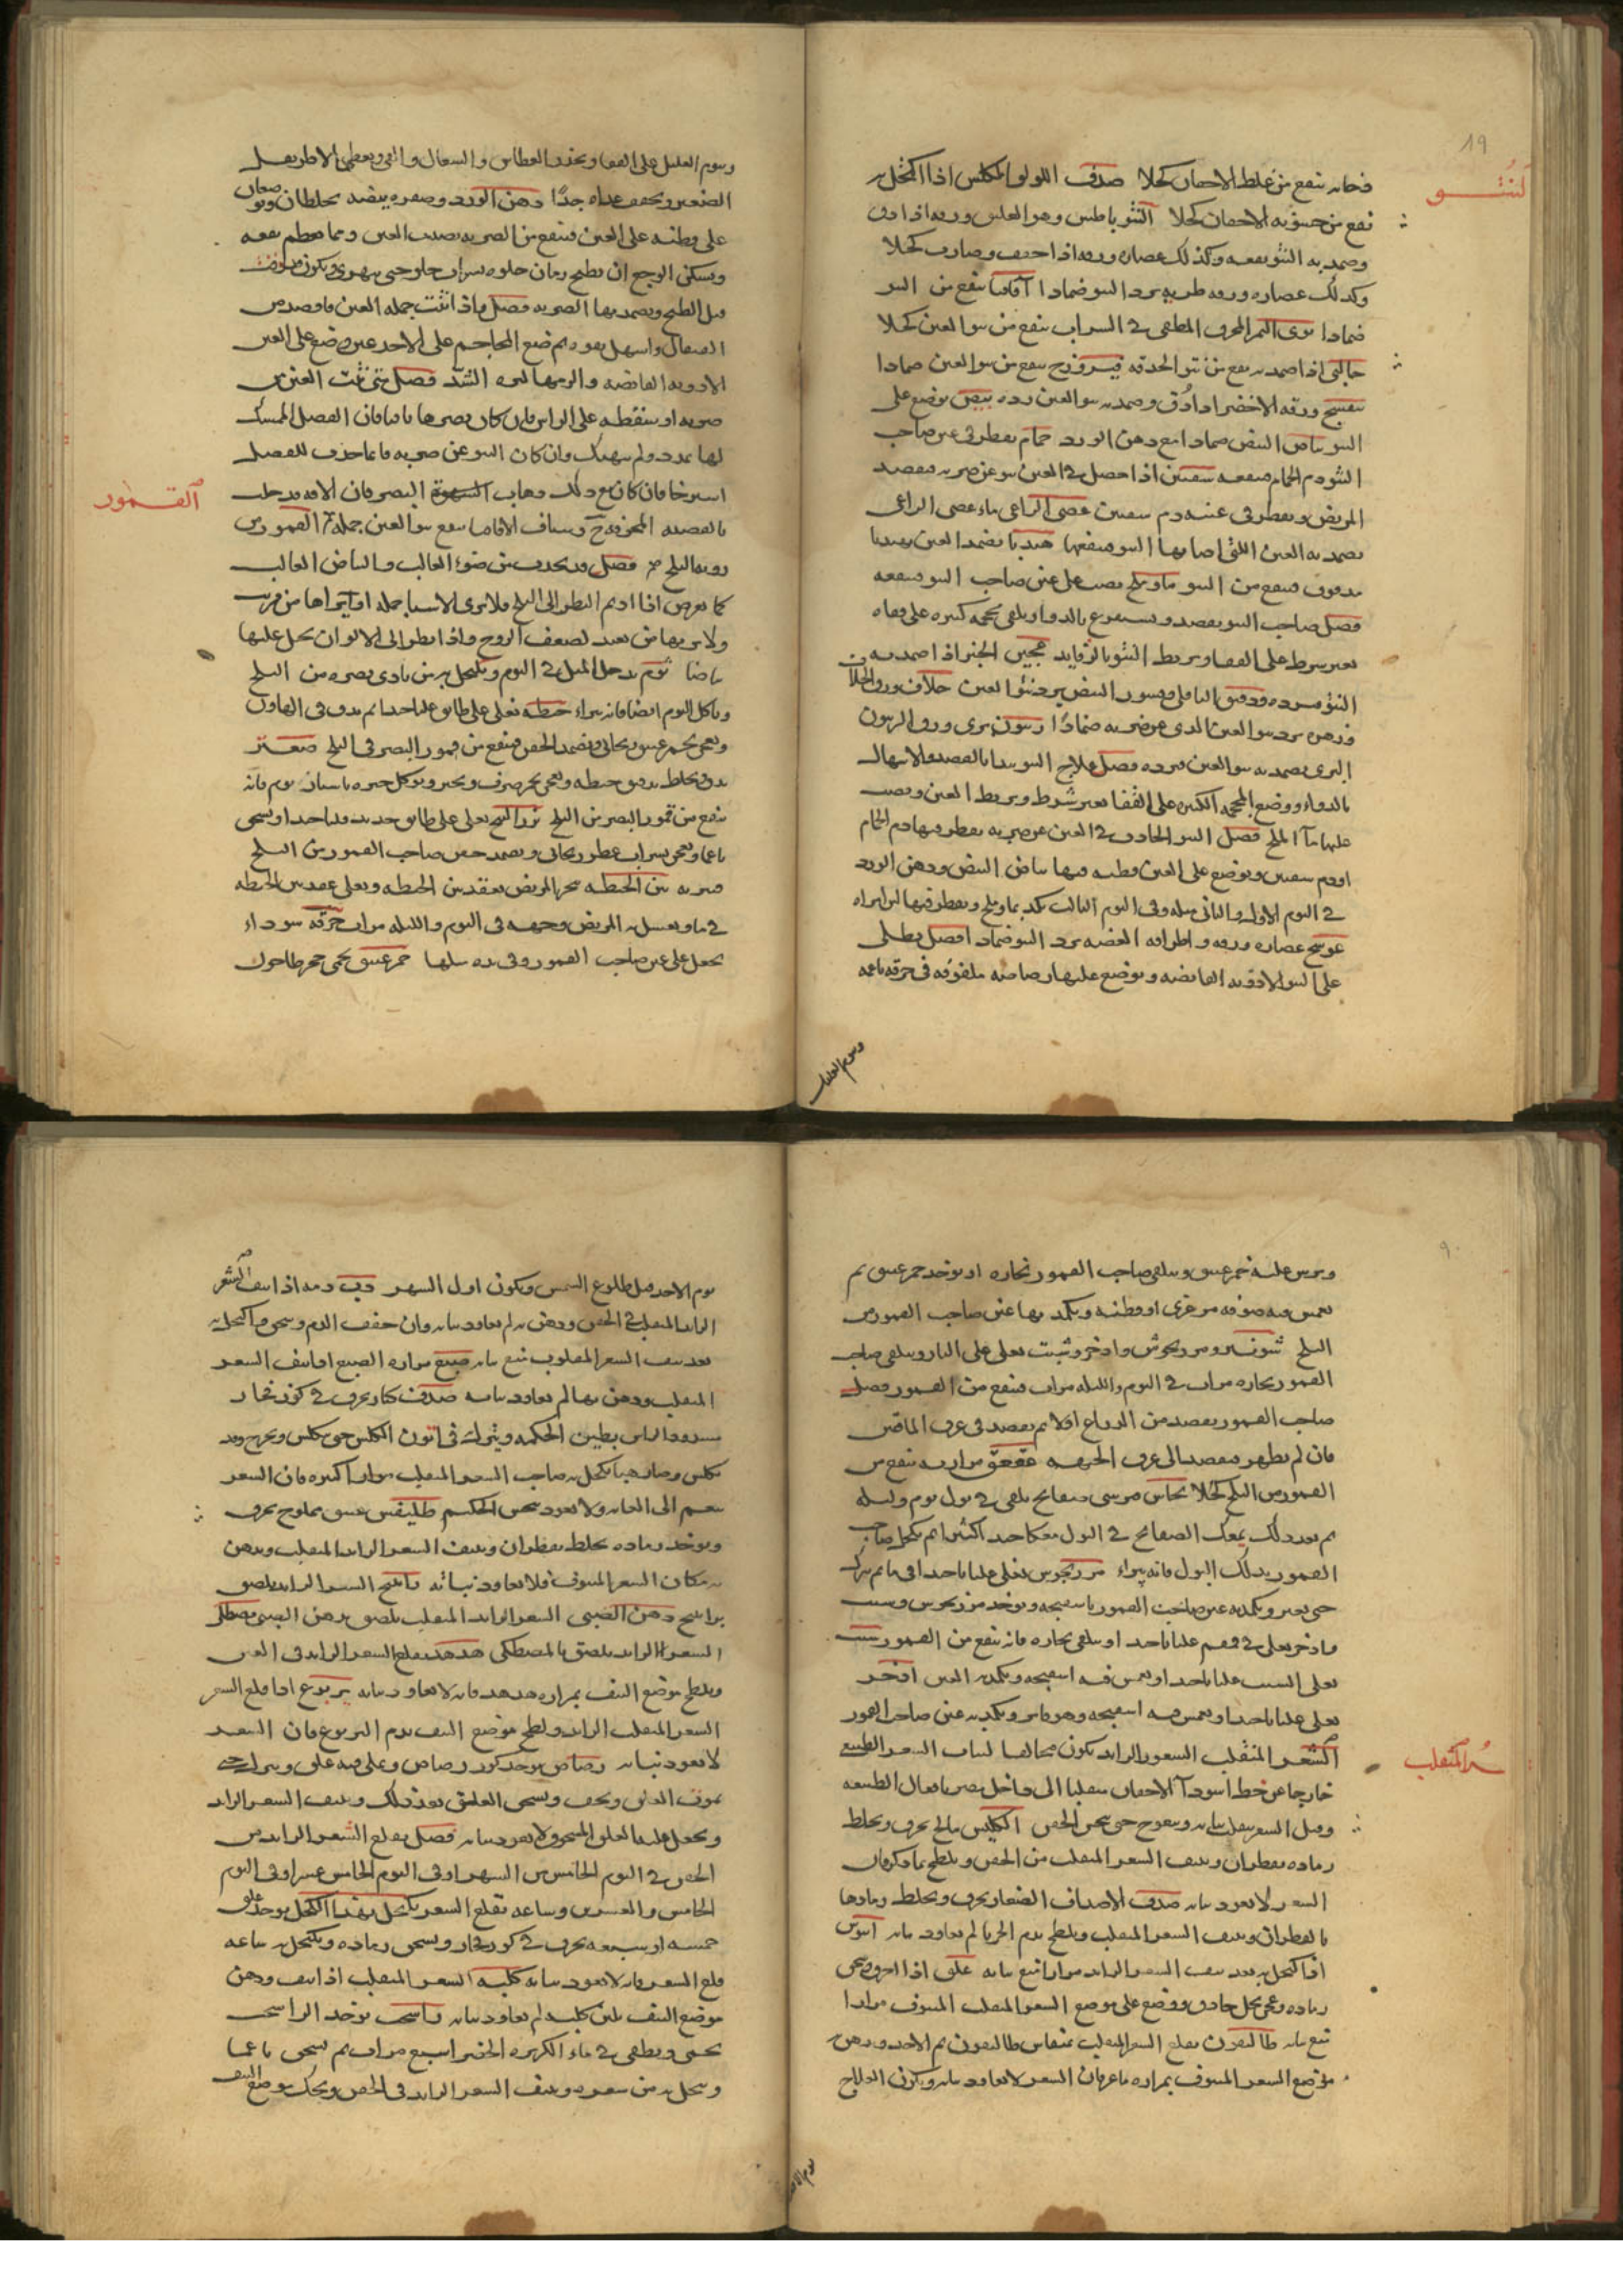 ١٩
النتو
فانه ينفع من غلظ الاجفان كحلا صدف اللولو المكلس اذا اكتحل به
نفع من خشونه الاجفان كحلا النتو باطس وهو العليق ورقه اذا دق
وضمد به النتو نفعه وكذلك عصاره ورقه اذا جفف وصارت كحلا
وكذلك عصاره ورقه طريه يرد النتو ضمادا اقاقيا ينفع من النتو
ضمادا نوى التمر المحرق المطفى في الشراب ينفع من نتو العين كحلا
اذا ضمد به نفع من نتو الحدقه فيروزج ينفع من نتو العين ضمادا
بنفسج ورقه الاخضر اذا دق وضمد به نتو العين رده بيض يوضع على
النتو بياض البيض ضمادا مع دهن الورد حمام يقطر في عين صاحب
النتو دم الحمام فينفعه شفنين اذا حصل في العين نتو عن ضربه فيفصد
المريض ويقطر في عينه دم شفنين عصى الراعي ماء عصى الراعي
يضمد به العين التي اصابها النتو فينفعها هندبا يضمد العين بهندبا
مدقوق فينفع من النتو ماء وملح يصب على عين صاحب النتو فينفعه
فصل صاحب النتو يفصد ويستفرغ بالدوا ويلقى محجمه كبيره على قفاه
بغير شرط على القفا ويربط النتو بالرفايد عجين الخبز اذا ضمد به
النتو يرده ودقيق الباقلى وقشور البيض يرد نتو العين خلاف ورق الخلاف
وزهره يرد نتو العين الذي عن ضربه ضمادا زيتون بري ورق الزيتون
البري يضمد به نتو العين فيرده فصل علاج النتو يبدا بالفصد والاسهال
بالدواء ووضع المحجمه الكبيره على القفا بغير شرط ويربط العين ويصب
عليها ماء الملح فصل النتو الحادث في العين عن ضربه يقطر فيها دم الحمام
او دم شفنين ويوضع على العين قطنه فيها بياض البيض ودهن الورد
في اليوم الاول والثاني مثله وفي اليوم الثالث يكمد بماء وملح ويقطر فيها لبن امراه
عوسج عصاره ورقه واطرافه الغضه يرد النتو ضمادا فصل يطلى
على النتو الادويه القابضه ويوضع عليها رصاصه ملفوفه في خرقه ناعمه
وينوم العليل
وينوم العليل على القفا ويحذر العطاس والسعال والقي ويعطى الاطريفل
الصغير ويخفف غذاه جدا دهن الورد وصفره بيضه يخلطان ويوضعان
على قطنه على العين فينفع من الضربه يصيب العين ومما يعظم نفعه
ويسكن الوجع ان يطبخ رمان حلو بشراب حلو حتى يتهرى ويكون
قبل الطبخ ويضمد بها الضربه فصل فاذا نتت جمله العين فافصد من
القيفال واسهل بقوه ثم ضع المحاجم على الاخدعين وضع على العين
الادويه القابضه والزمها الشد فصل متى نتت العين من
ضربه او سقطه على الراس فان كان بصرها باقيا فان العضل الممسك
لها تمدد ولم ينهتك وان كان النتو عن ضربه فانما حدث للعضل
استرخا فان كان مع ذلك ذهاب البصر فان الافه قد حلت
بالعصبه المجوفه وشياف الاقاقيا ينفع نتو العين جمله القمور من
القمور
رويه الثلج فصل قد يحدث من ضوء الغالب والبياض الغالب
كما يعرض اذا اديم النظر الى الثلج فلا يرى الاشيا جمله او يراها من قريب
ولا يراها من بعيد لضعف الروح واذا نظر الى الالوان تخيل عليها
بياضا ثوم يدخل الميل في الثوم ويكتحل به من تاذى بصره من الثلج
وياكل الثوم ايضا فانه يبراء حنطه تغلى على طابق غليا جيدا ثم تدق في الهاون
وتعجن بخمر عتيق ريحاني ويضمد الجفن فينفع من قمور البصر في الثلج صعتر
يدق ويخلط بدقيق حنطه ويعجن بخمر صرف ويخبز ويوكل خبزه باسنان ثوم فانه
ينفع من قمور البصر من الثلج بزر البنج يغلى على طابق حديد غليا جيدا ويسحق
ناعما ويعجن بشراب عطر ريحاني ويضمد جفن صاحب القمور من الثلج
فيبريه تبن الحنطه يبخر المريض بعقد تبن الحنطه ويغلى عقد تبن الحنطه
في ماء ويغسل به المريض وجهه في اليوم والليله مرات خرقه سوداء
يجعل على عين صاحب القمور وفي يده مثلها خمر عتيق يحمى حجر طاحون
٩٠
ويرش عليه خمر عتيق ويتلقى صاحب القمور بخاره او يوخذ خمر عتيق ثم
يغمس فيه صوفه مرعزى او قطنه ويكمد بها عين صاحب القمور من
الثلج شونيز ومرزنجوش واذخر وشبت يغلى على النار ويتلقى صاحب
القمور بخاره مرات في اليوم والليله مرات فينفع من القمور فصل
صاحب القمور يفصد من الذراع اولا ثم يفصد في عرق الماقين
فان لم يظهر فيفصد الى عرق الجبهه عقعق مرارته ينفع من
القمور من الثلج كحلا نحاس قبرسي صفايح تلقى في بول يوم وليله
ثم بعد ذلك يمعك الصفايح في البول معكا جيدا كثيرا ثم يكتحل صاحب
القمور بذلك البول فانه يبراء مرزنجوش يغلى غليا جيدا في ماء ثم يترك
حتى يفتر ويكمد به عين صاحب القمور باسفنجه ويوخذ مرزنجوش وشبت
واذخر يغلى في قمقم غليا جيدا ويتلقى بخاره فانه ينفع من القمور شبت
يغلى الشبت غليا جيدا ويغمس فيه اسفنجه ويكمد به العين اذخر
يغلى غليا جيدا ويغمس فيه اسفنجه وهو فاتر ويكمد به عين صاحب القمور
الشعر المنقلب الشعر الزايد يكون مخالفا لنبات الشعر الطبيعي
الشعر المنقلب
خارجا عن خط استوآ الاجفان منقلبا الى داخل يضر بافعال الطبيعه
وقيل الشعر ينقلب نباته ويتعوج حتى ينخس الجفن انكليس مالح يحرق ويخلط
رماده بقطران وينتف الشعر المنقلب من الجفن ويلطخ بما ذكر فان
الشعر لا يعود نباته صدف الاصداف الصغار يحرق ويخلط رمادها
بالقطران وينتف الشعر المنقلب ويلطخ بدم الحربا لم يعاود نباته
اذا اكتحل به بعد نتف الشعر الزايد مرارا منع نباته علق اذا احرق وسحق
رماده وعجن بخل حاذق ووضع على موضع الشعر المنقلب المنتوف مرارا
منع نباته طاليقون يقلع الشعر المنقلب بمنقاش طاليقون ثم الاخذ ودهن
موضع الشعر المنتوف بمراره ماعز فان الشعر لا يعاود نباته ويكون العلاج
يوم الاحد
يوم الاحد قبل طلوع الشمس ويكون اول الشهر دب دمه اذا نتف الشعر
الزايد المنقلب في الجفن ودهن به لم يعاود نباته وان جفف الدم وسحق واكتحل به
بعد نتف الشعر المقلوب منع نباته ضبع مراره الضبع اذا نتف الشعر
المنقلب ودهن بها لم يعاود نباته صدف كبار يحرق في كوز فخار
مسدود الراس بطين الحكمه ويترك في اتون الكلس حتى يتكلس ويخرج وقد
تكلس وصار هبا يكتحل به صاحب الشعر المنقلب مرارا كثيره فان الشعر
ينعم الى الغايه ولا يعود ينخس الحكيم طليقس عتيق مملوح يحرق
ويوخذ رماده يخلط بقطران وينتف الشعر الزايد المنقلب ويدهن
به مكان الشعر المنتوف فلا يعاود نباته راتينج الشعر الزايد يلصق
براتينج دهن الصيني الشعر الزايد المنقلب يلصق بدهن الصيني مصطكى
الشعر الزايد يلصق بالمصطكى هدهد يقلع الشعر الزايد في العين
ويلطخ موضع النتف بمراره هدهد فانه لا يعاود نباته يربوع اذا قلع الشعر
الشعر المنقلب الزايد ولطخ موضع النتف بدم اليربوع فان الشعر
لا يعود نباته رصاص يوخذ كوز رصاص وعلى فيه علق ويترك حتى
يموت العلق ويجف ويسحق العلق بعد ذلك وينتف الشعر الزايد
ويجعل عليه العلق المسحوق ولا يعود نباته فصل يقلع الشعر الزايد من
الجفن في اليوم الخامس من الشهر او في اليوم الخامس عشر او في اليوم
الخامس والعشرين وساعه تقلع الشعر يكتحل بهذا الكحل يوخذ علق
خمسه او سبعه يحرق في كوز فخار ويسحق رماده ويكتحل به ساعه
قلع الشعر فانه لا يعود نباته كلبه الشعر المنقلب اذا نتف ودهن
موضع النتف بلبن كلبه لم يعاود نباته راسخت يوخذ الراسخت
يحمى ويطفى في ماء الكزبره الخضرا سبع مرات ثم يسحق ناعما
وينخل به من شعريه وينتف الشعر الزايد في الجفن ويحك موضع النتف